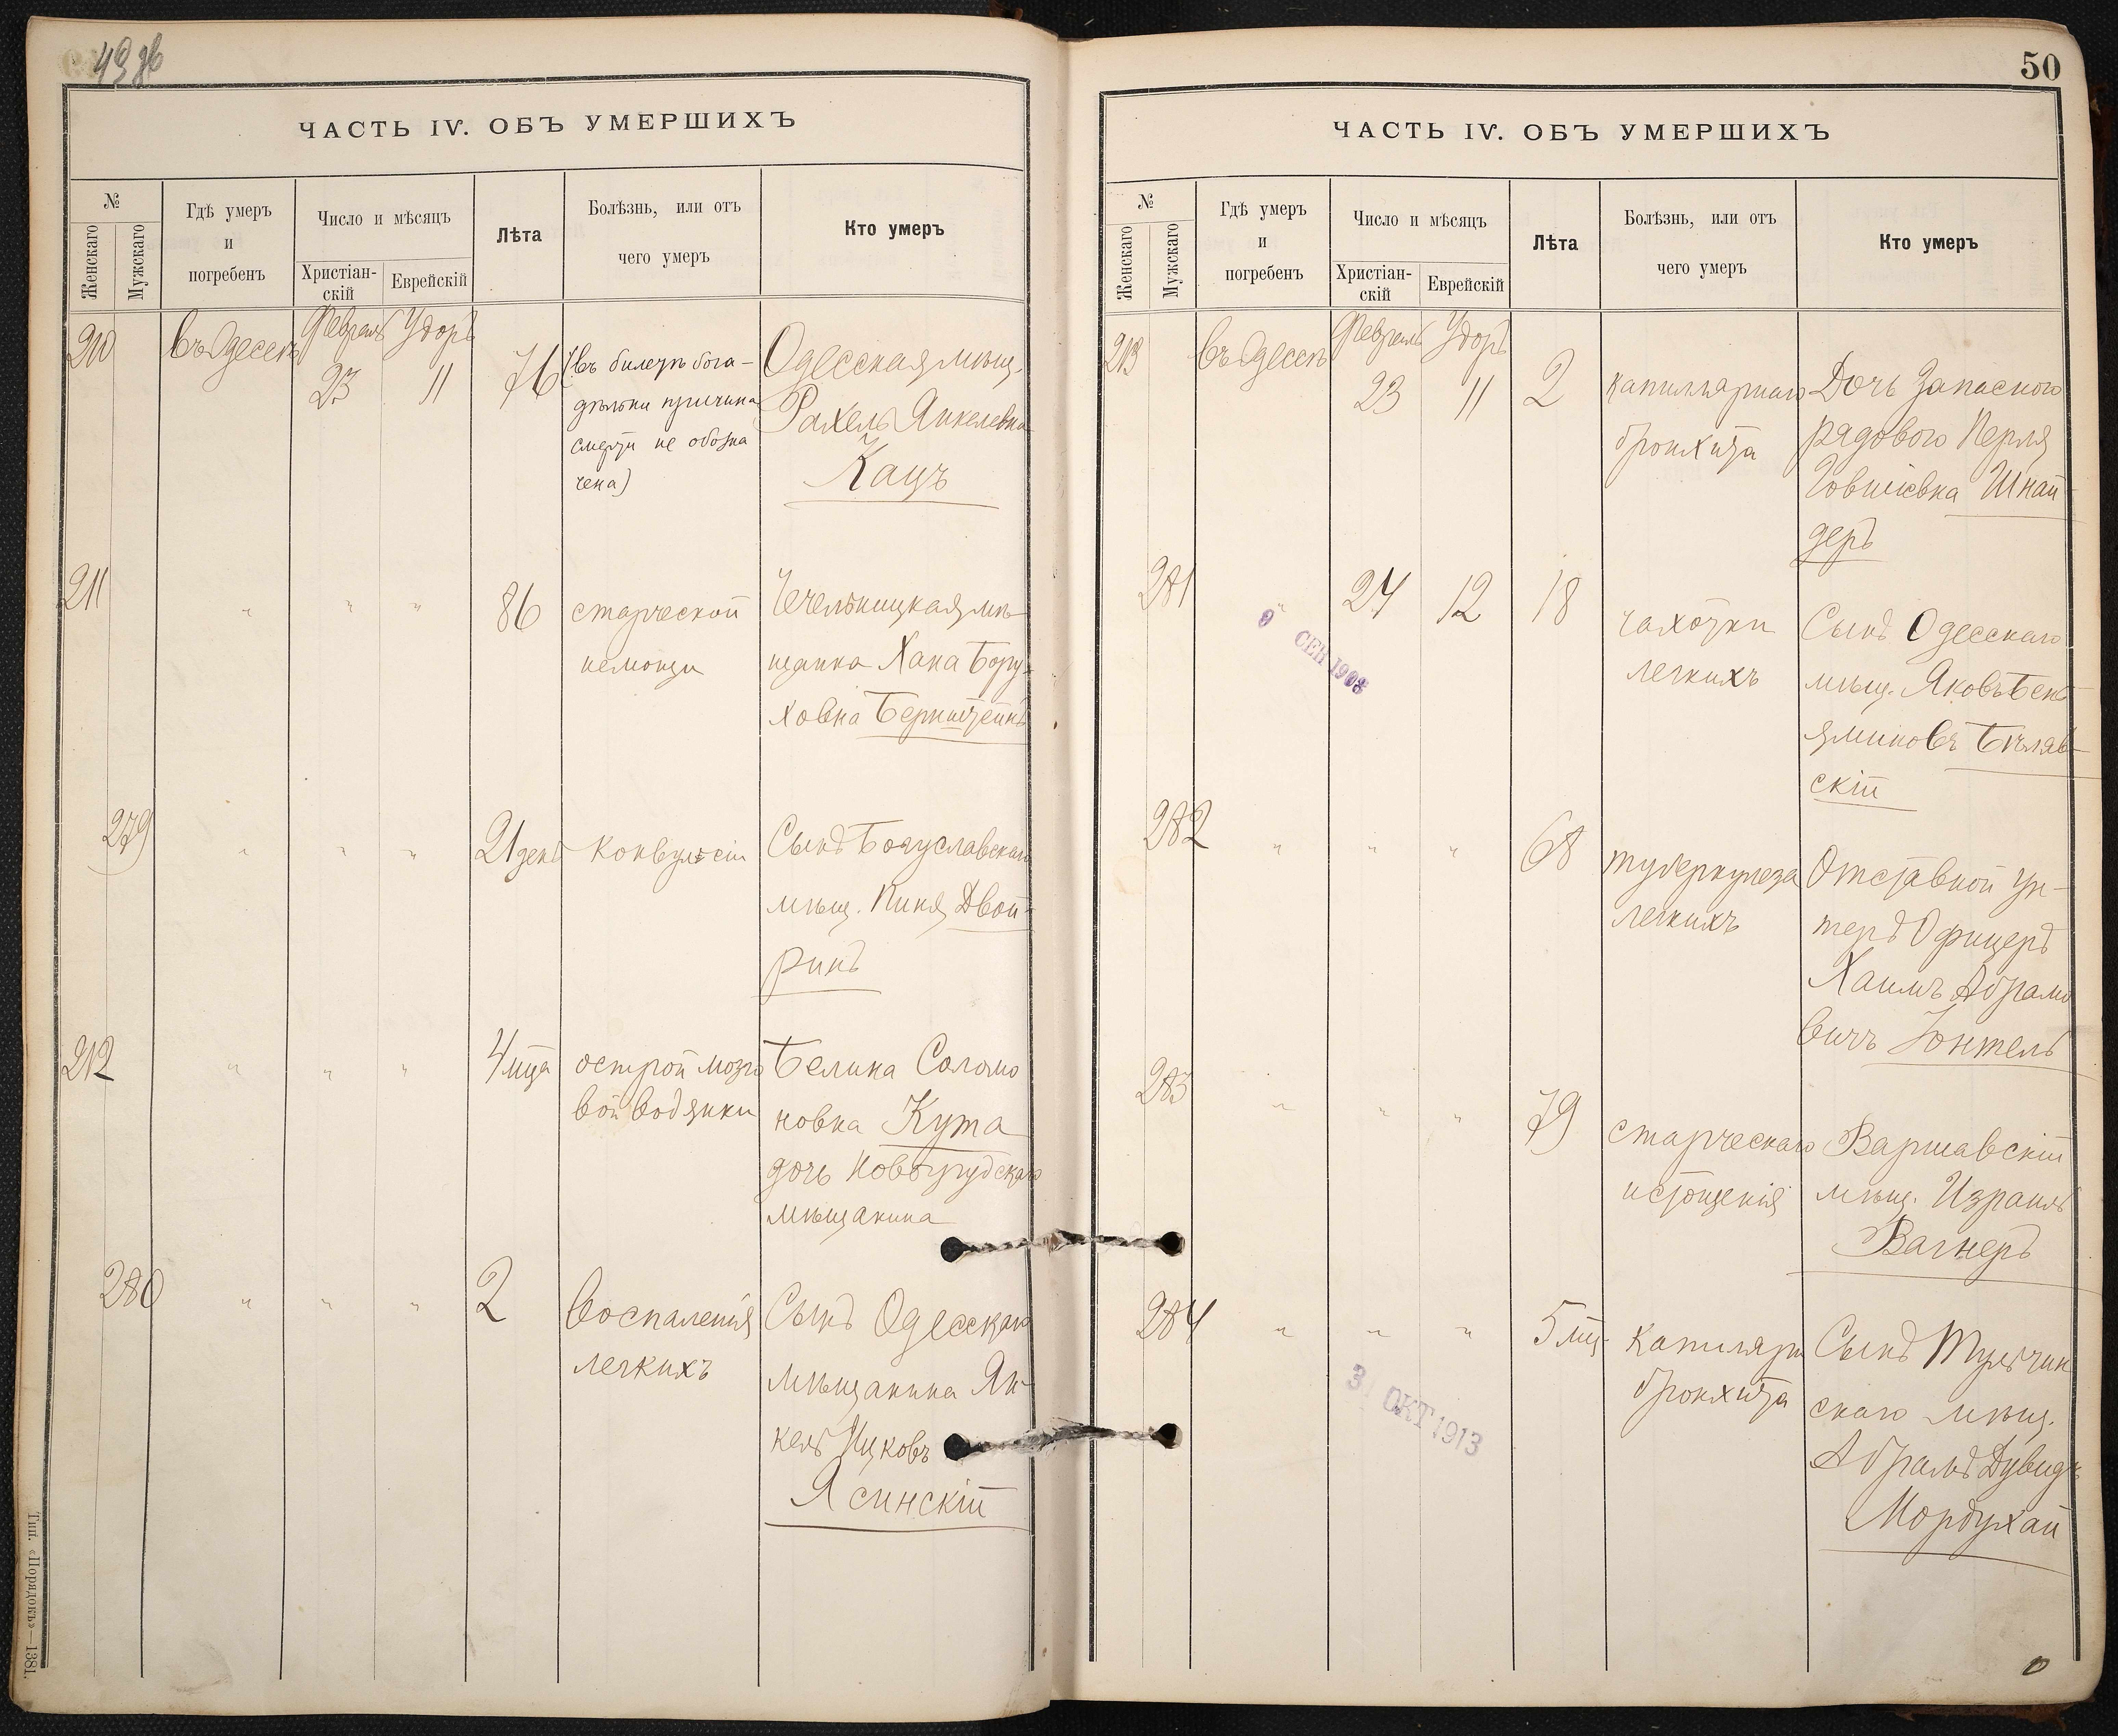 49 об
ЧАСТЬ IV. ОБЪ УМЕРШИХЪ
№
Женскаго
Мужскаго
Гдѣ умеръ
и
погребенъ
Число и мѣсяцъ
Христіан-
скій
Еврейскій
Лѣта
Болѣзнь, или отъ
чего умеръ
Кто умеръ
210
въ Одессѣ
Февраль
23
Удоръ
11
76
(въ билетѣ бога-
дѣльни причина
смерти не обозна
чена)
Одесская мѣщ.
Рахель Янкелевна
Кацъ
211
"
"
"
86
старческой
немощи
Чечельницкая мѣ-
щанка Хана Бору-
ховна Бернштейнъ
279
"
"
"
21 день
конвульсіи
Сынъ Богуславскаго
мѣщ. Пиня Двой-
ринъ
212
"
"
"
4 мца
острой мозго
вой водянки
Бейла Соломо
новна Кута
дочь Новогрудскаго
мѣщанина
280
"
"
"
2
Воспаленія
легкихъ
Сынъ Одесскаго
мѣщанина Ян-
кель Ицковъ
Ясинскій
Тип. «Порядокъ»—1381.
50
ЧАСТЬ IV. ОБЪ УМЕРШИХЪ
№
Женскаго
Мужскаго
Гдѣ умеръ
и
погребенъ
Число и мѣсяцъ
Христіан-
скій
Еврейскій
Лѣта
Болѣзнь, или отъ
чего умеръ
Кто умеръ
213
въ Одессѣ
Февраль
23
Удоръ
11
2
капиллярнаго
бронхита
Дочь Запасного
рядового Перля
Говшіевна Шнай
деръ
281
"
24
12
18
чахотки
легкихъ
Сынъ Одесскаго
мѣщ. Яковъ Бень
яминовъ Бѣляв-
скій
9 СЕН 1908
282
"
"
"
68
туберкулеза
легкихъ
Отставной ун-
теръ Офицеръ
Хаимъ Абрамо
вичъ Юнтель
283
"
"
"
79
старческаго
истощенія
Варшавскій
мѣщ. Израиль
Вагнеръ
284
"
"
"
5 мц.
капилярн
бронхита
Сынъ Тульчин
скаго мѣщ.
Абрамъ Дувидъ
Мордухай
31 ОКТ 1913